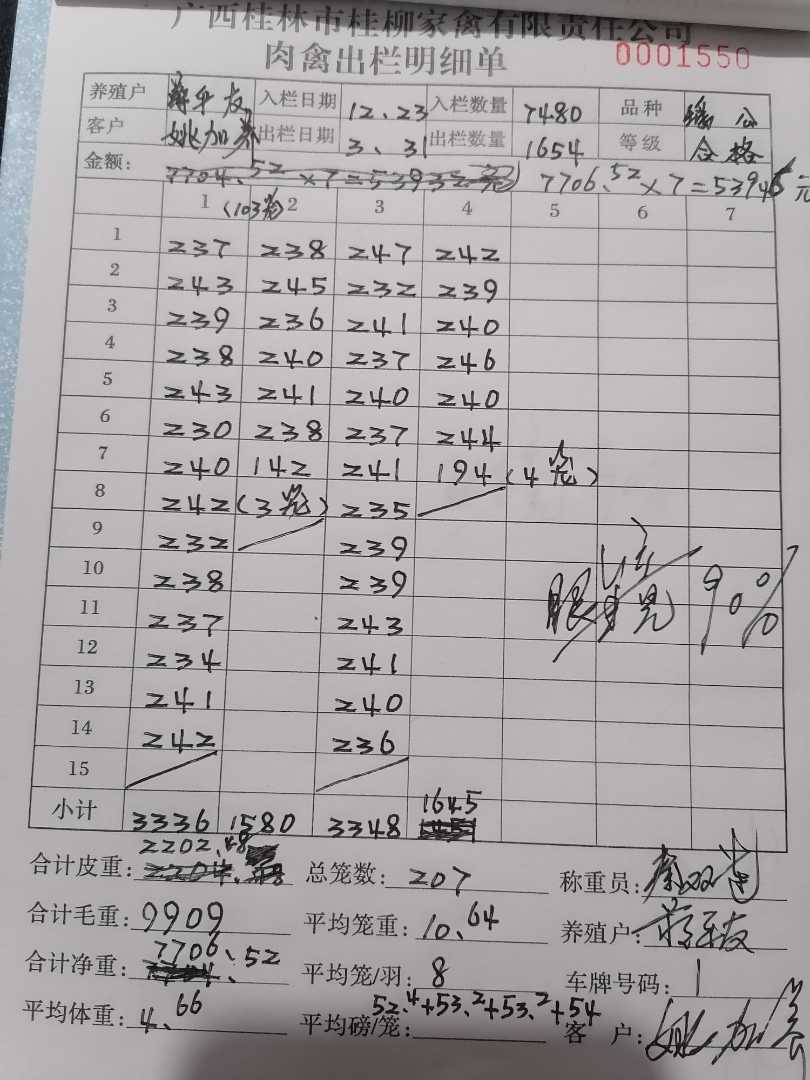 广西桂林市桂柳家禽有限责任公司
肉禽出栏明细单 0001550
养殖户 入栏日期 12、23 入栏数量 7480 品种
客户 姚加养 出栏日期 3、31 出栏数量 1654 等级 合格
金额： 7706.52×7=53945元
1 (103笼) 2 3 4 5 6 7
1 237 238 247 242
2 243 245 232 239
3 239 236 241 240
4 238 240 237 246
5 243 241 240 240
6 230 238 237 244
7 240 142 241 194 (4笼)
8 242 (3笼) 235
9 232 239
10 238 239
11 237 243
12 234 241
13 241 240
14 242 236
15
90%
小计 3336 1580 3348 1645
合计皮重： 2202.48 总笼数： 207 称重员：
合计毛重： 9909 平均笼重： 10、64 养殖户：
合计净重： 7706、52 平均笼/羽： 8 车牌号码： 1
平均体重： 4、66 平均磅/笼： 52.4+53.2+53.2+54 客户：